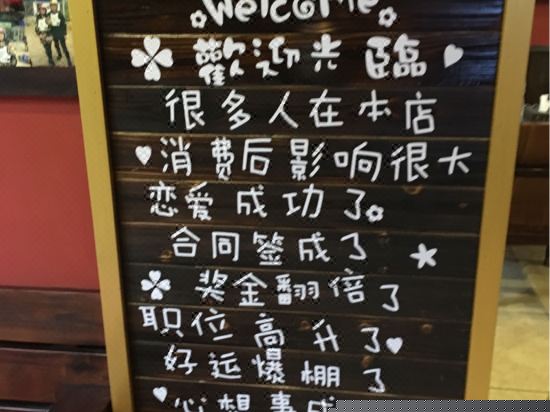 Welcome
歡迎光臨
很多人在本店
消费后影响很大
恋爱成功了
合同签成了
奖金翻倍了
职位高升了
好运爆棚了
心想事成